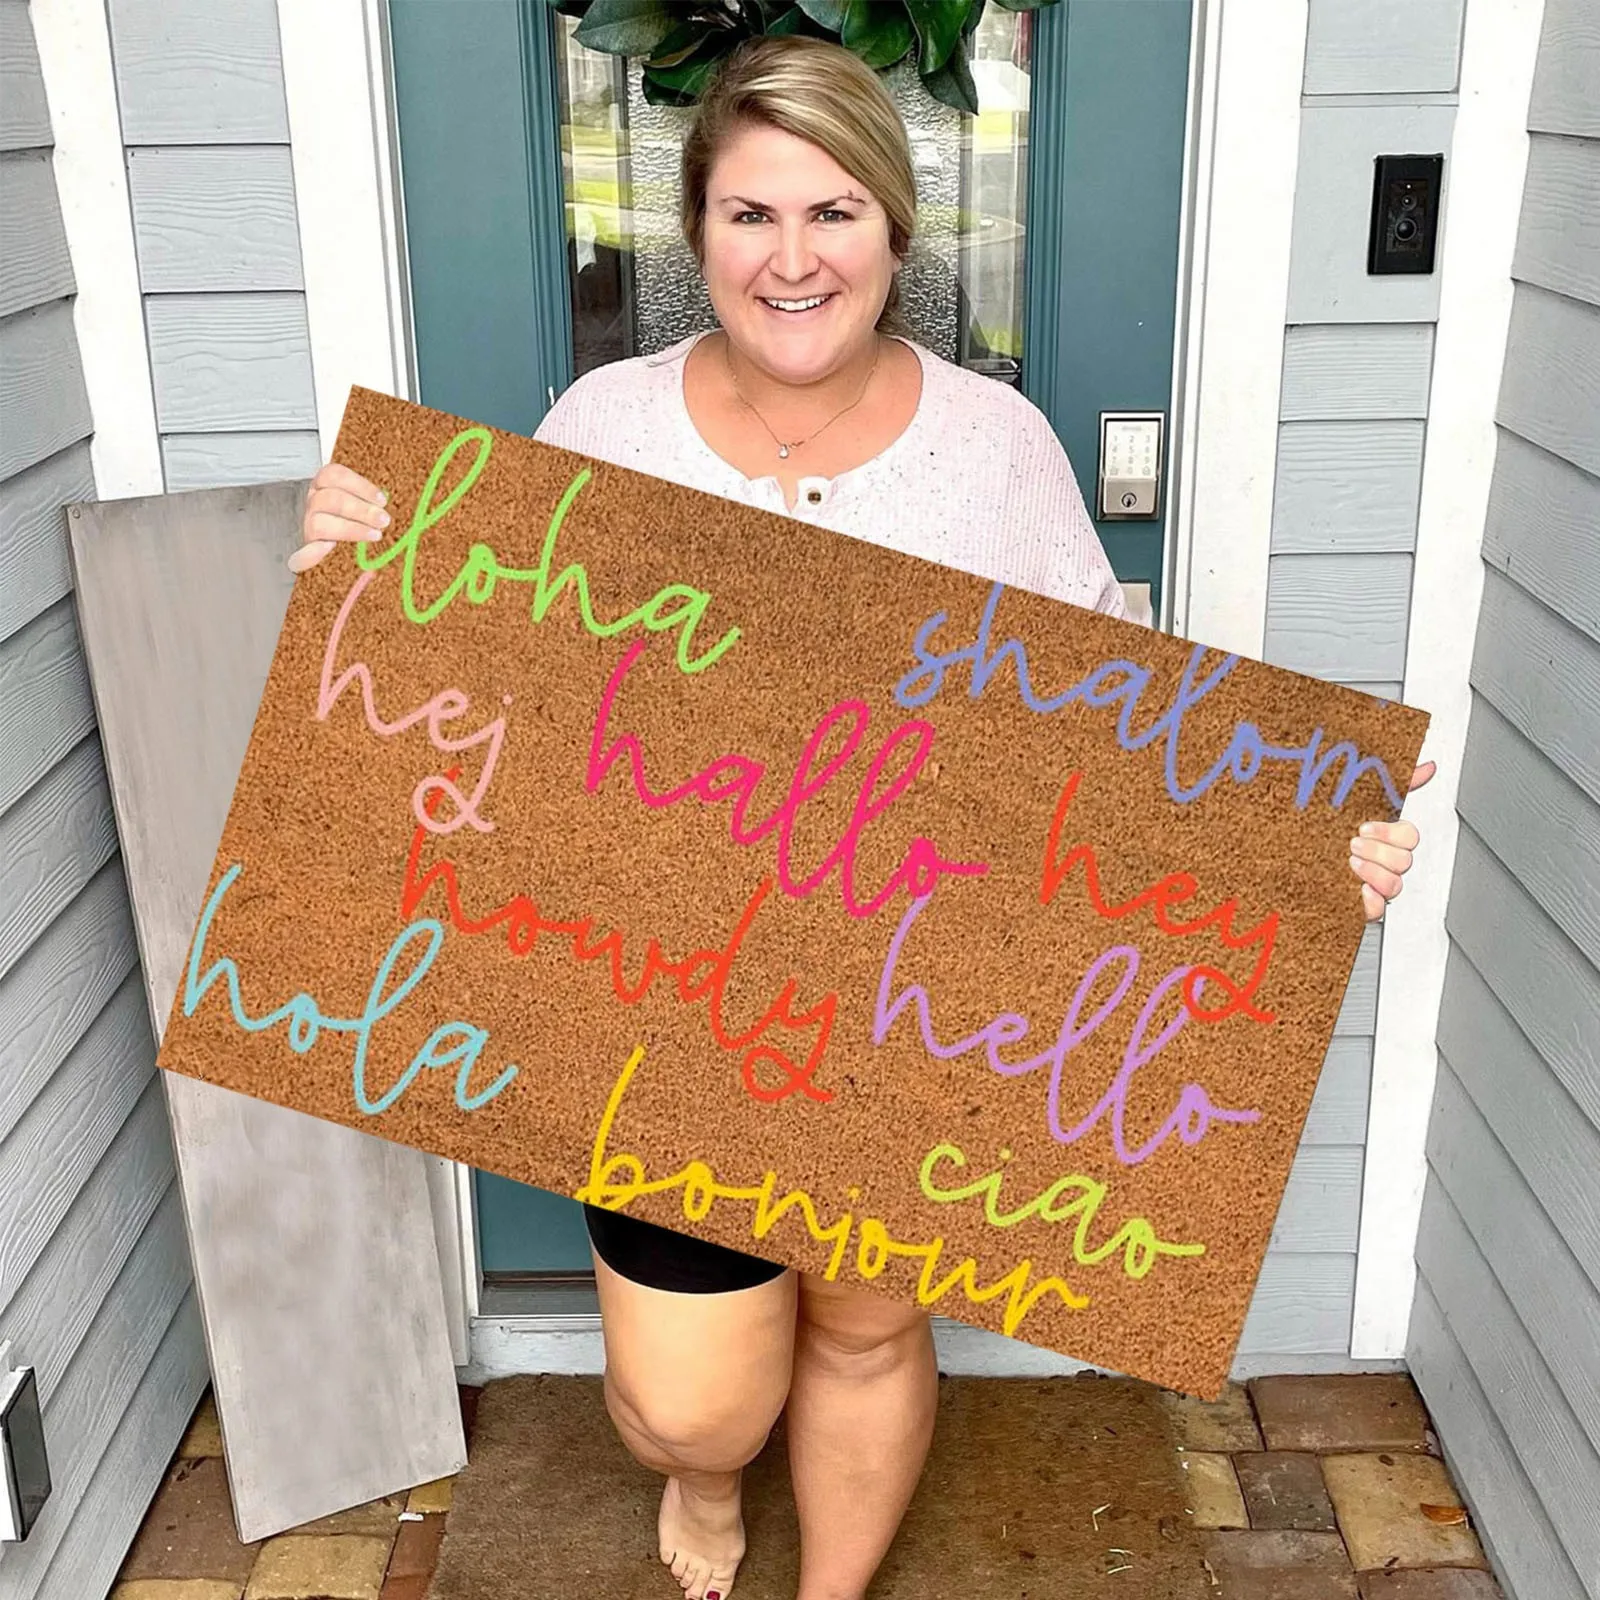 aloha
shalom
hej
hallo
hey
howdy
hello
hola
ciao
bonjour